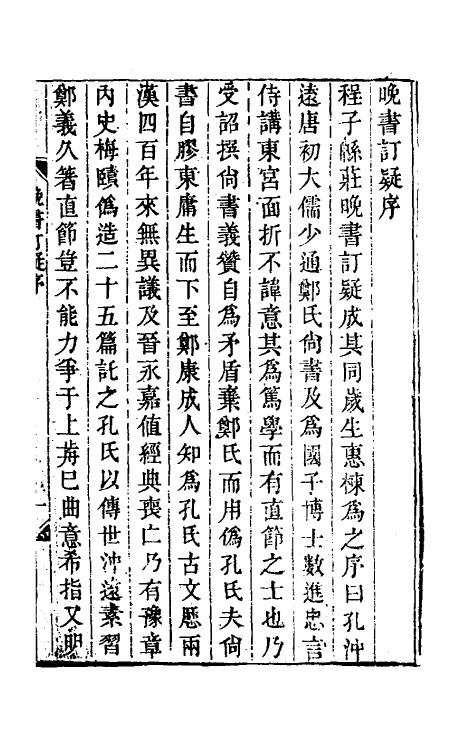 晚書訂疑序
程子緜莊晚書訂疑成其同歲生惠棟爲之序曰孔沖
遠唐初大儒少通鄭氏尙書及爲國子博士數進忠言
侍講東宮面折不諱意其爲篤學而有直節之士也乃
受詔撰尙書義贊自爲矛盾棄鄭氏而用僞孔氏夫尙
書自膠東庸生而下至鄭康成人知爲孔氏古文歷兩
漢四百年來無異議及晉永嘉値經典喪亡乃有豫章
內史梅賾僞造二十五篇託之孔氏以傳世沖遠素習
鄭義久著直節豈不能力爭于上毎已曲意希指又明
晚書訂疑序
一